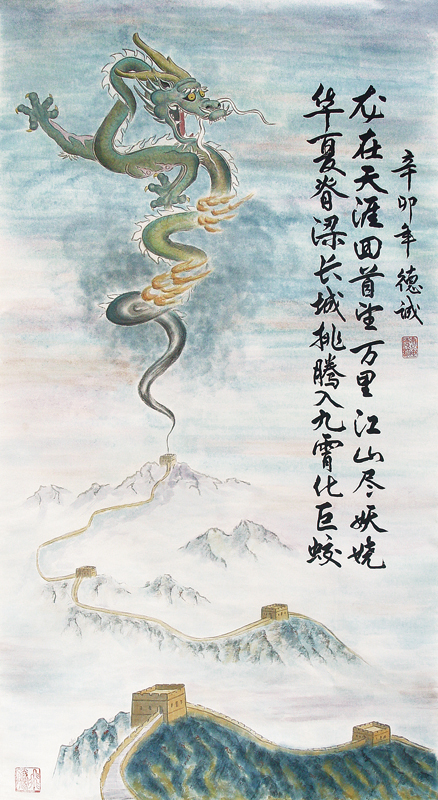 龙在天涯回首望万里江山尽妖娆
华夏脊梁长城挑腾入九霄化巨蛟
辛卯年德诚